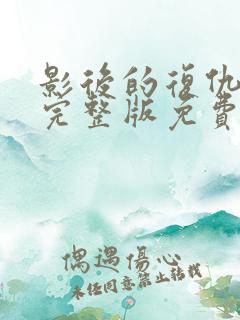 影後的復仇
完整版免費
偶遇傷心
未经同意禁止转载